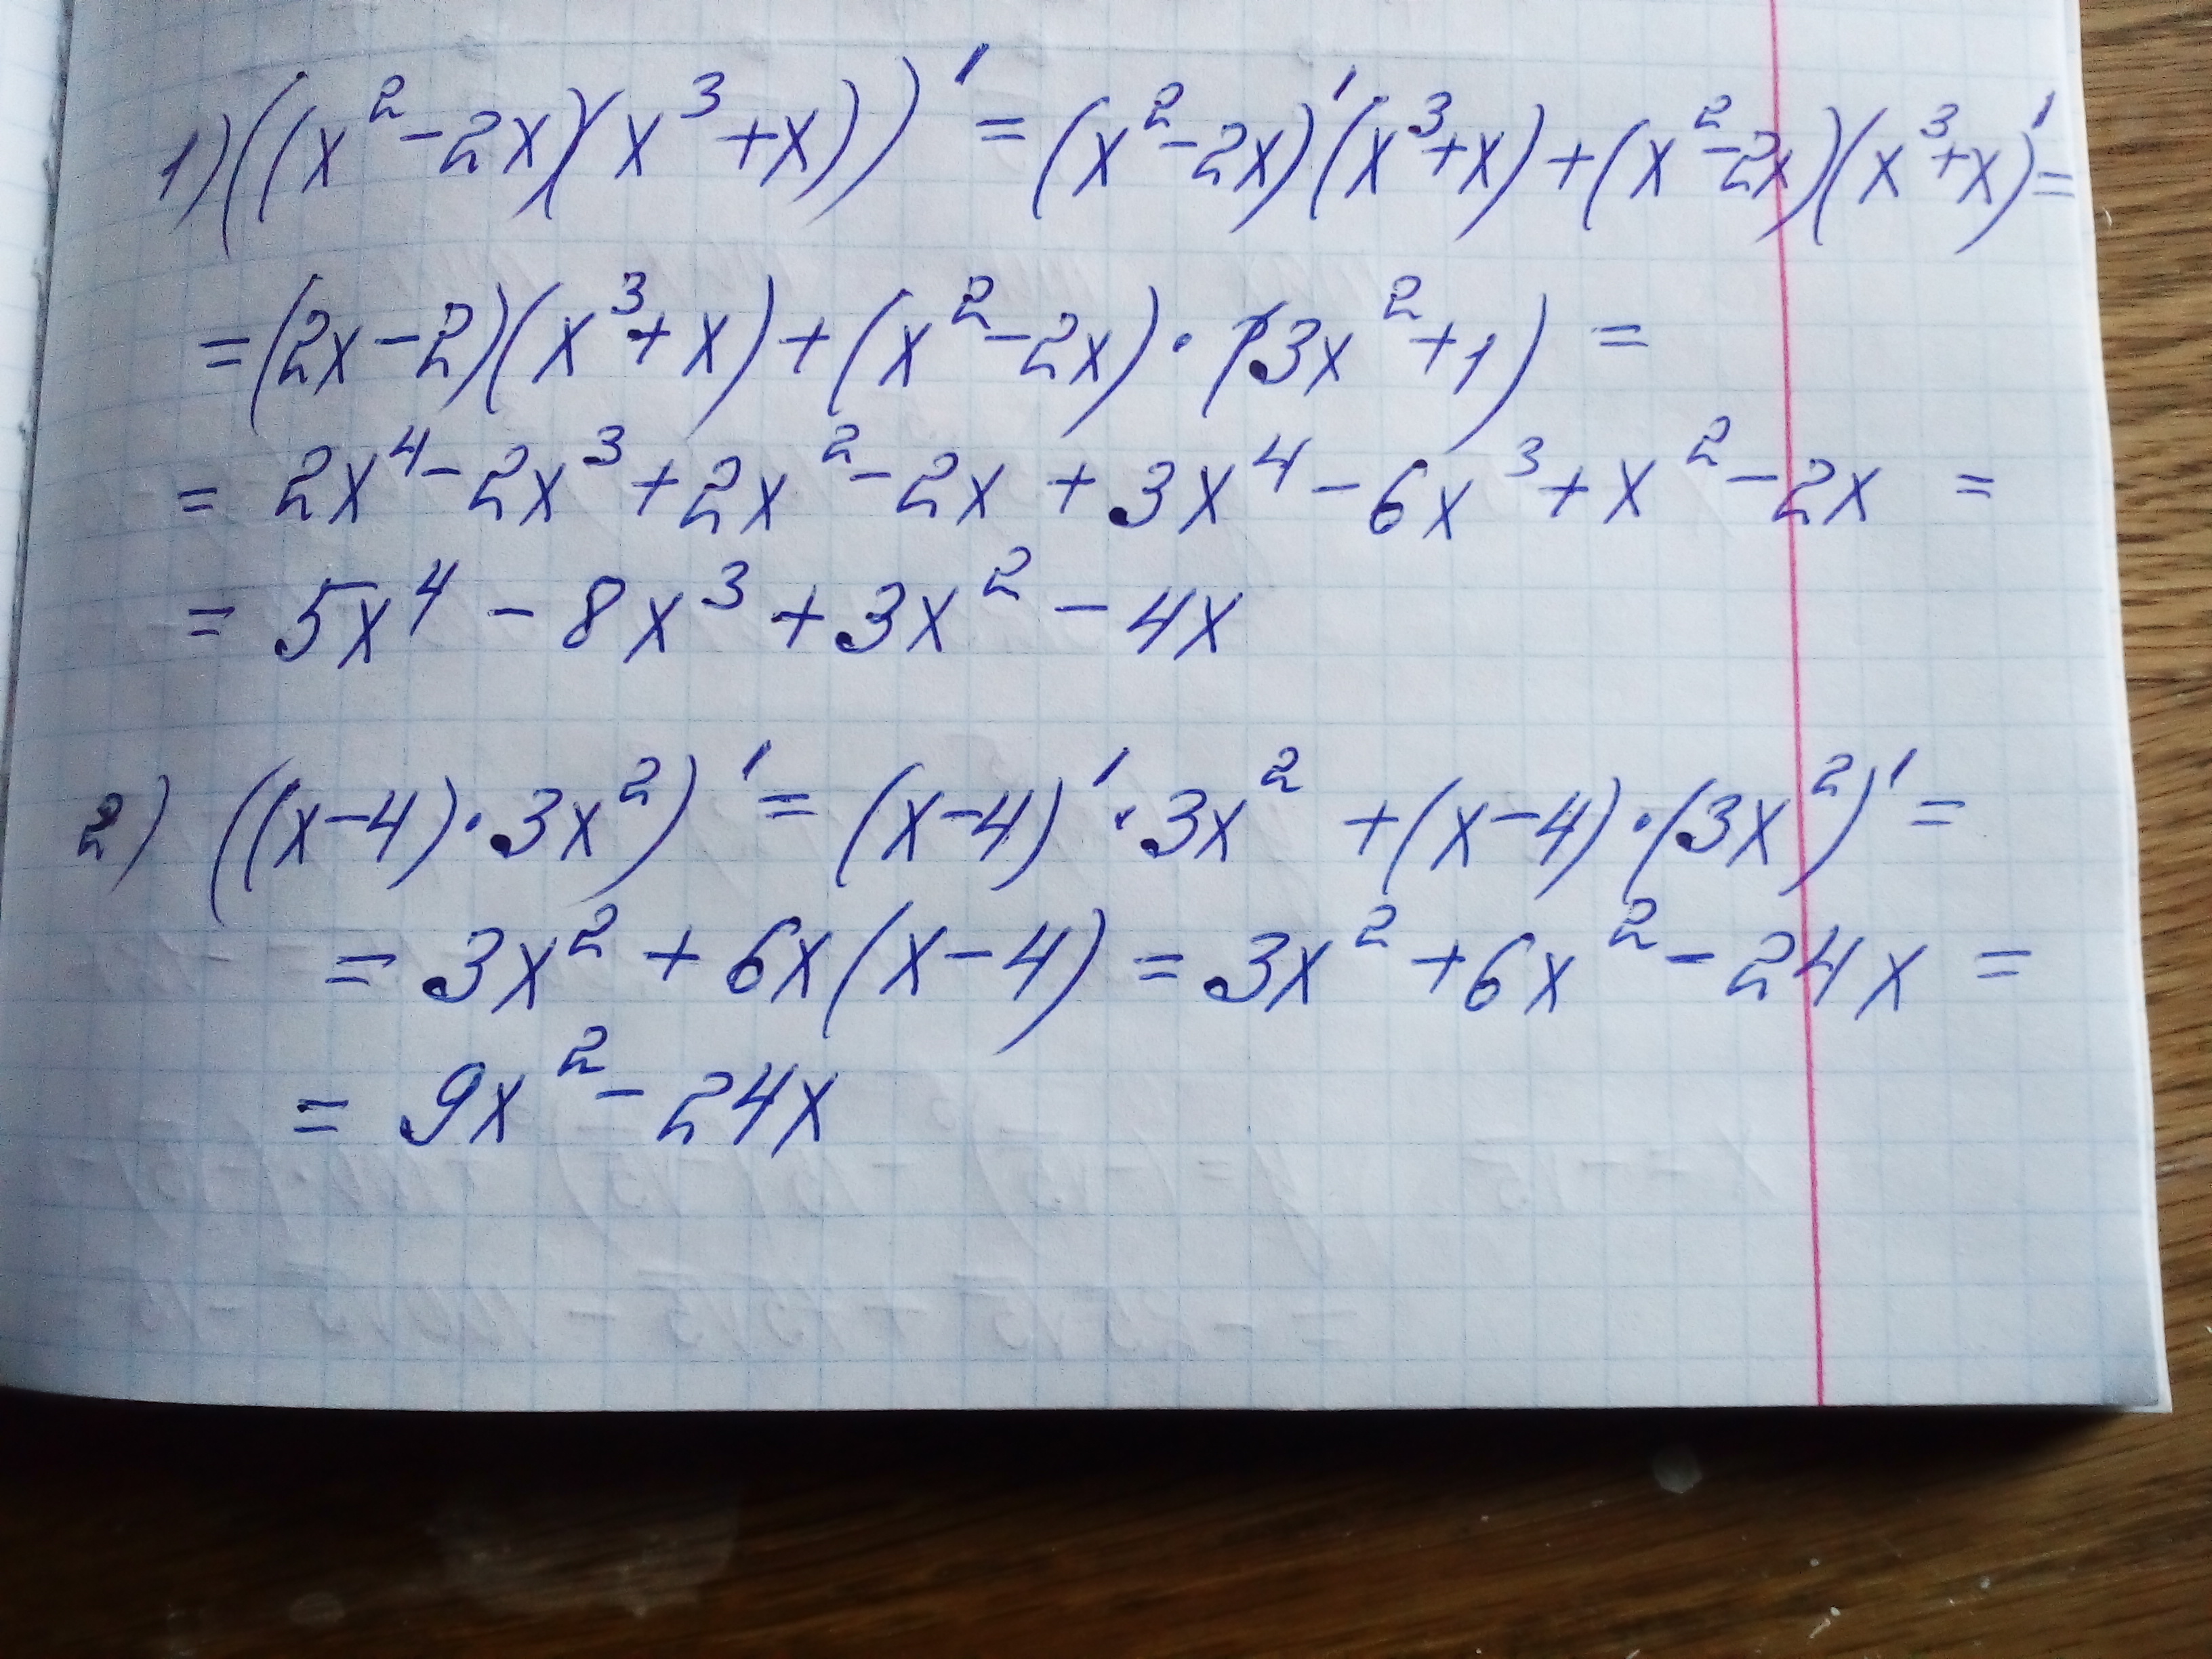 1) ((x²-2x)(x³+x))' = (x²-2x)'(x³+x)+(x²-2x)(x³+x)'=
=(2x-2)(x³+x)+(x²-2x)·(3x²+1) =
= 2x⁴-2x³+2x²-2x+3x⁴-6x³+x²-2x =
= 5x⁴-8x³+3x²-4x
2) ((x-4)·3x²)' = (x-4)'·3x² +(x-4)·(3x²)' =
= 3x²+6x(x-4) = 3x²+6x²-24x =
= 9x²-24x